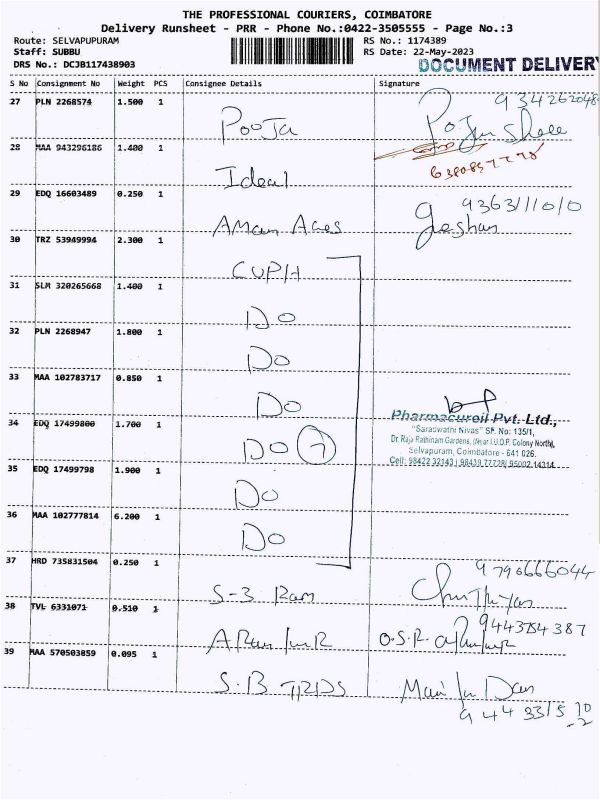 THE PROFESSIONAL COURIERS, COIMBATORE
Delivery Runsheet - PRR - Phone No.:0422-3505555 - Page No.:3
Route: SELVAPUPURAM RS No.: 1174389
Staff: SUBBU RS Date: 22-May-2023
DRS No.: DCJB117438903 DOCUMENT DELIVERY
S No Consignment No Weight PCS Consignee Details Signature
27 PLN 2268574 1.500 1 Pooja
28 MAA 943296186 1.400 1 Ideal
29 EDQ 16603489 0.250 1
30 TRZ 53949994 2.300 1 CUPH
31 SLM 320265668 1.400 1 Do
32 PLN 2268947 1.800 1 Do
33 MAA 102783717 0.850 1 Do
34 EDQ 17499800 1.700 1 Do 7
Pharmacureil Pvt. Ltd.,
"Saraswathi Nivas" SF. No: 135/1,
Dr. Raja Rathinam Gardens, (Near I.U.D.P. Colony North),
Selvapuram, Coimbatore - 641 026.
Cell: 98422 32143 | 98439 77728| 95002 14314
35 EDQ 17499798 1.900 1 Do
36 MAA 102777814 6.200 1 Do
37 HRD 735831504 0.250 1 S-3 Ram 9790666044
38 TVL 6331071 0.510 1 O.S.R.
39 MAA 570503859 0.095 1 S.B